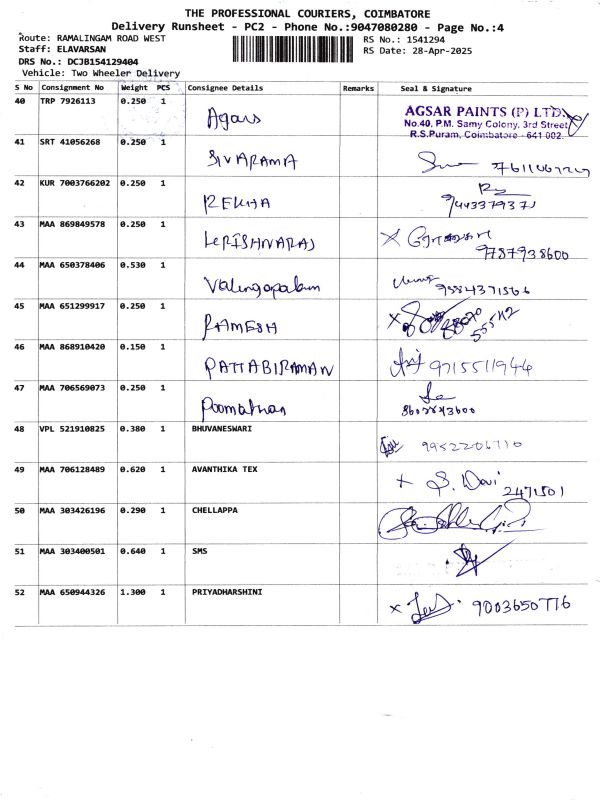 THE PROFESSIONAL COURIERS, COIMBATORE
Delivery Runsheet - PC2 - Phone No.:9047080280 - Page No.:4
Route: RAMALINGAM ROAD WEST
RS No.: 1541294
Staff: ELAVARSAN
RS Date: 28-Apr-2025
DRS No.: DCJB154129404
Vehicle: Two Wheeler Delivery
S No Consignment No Weight PCS Consignee Details Remarks Seal & Signature
40 TRP 7926113 0.250 1
AGSAR PAINTS (P) LTD.
No.40, P.M. Samy Colony, 3rd Street
R.S.Puram, Coimbatore - 641 002.
41 SRT 41056268 0.250 1 SIVARAMA
42 KUR 7003766202 0.250 1 REKHA
43 MAA 869849578 0.250 1
9787938600
44 MAA 650378406 0.530 1
45 MAA 651299917 0.250 1 RAMESH
46 MAA 868910420 0.150 1 PATTABIRAMAN 9715511944
47 MAA 706569073 0.250 1
48 VPL 521910825 0.380 1 BHUVANESWARI
49 MAA 706128489 0.620 1 AVANTHIKA TEX
2471501
50 MAA 303426196 0.290 1 CHELLAPPA
51 MAA 303400501 0.640 1 SMS
52 MAA 650944326 1.300 1 PRIYADHARSHINI
9003650776